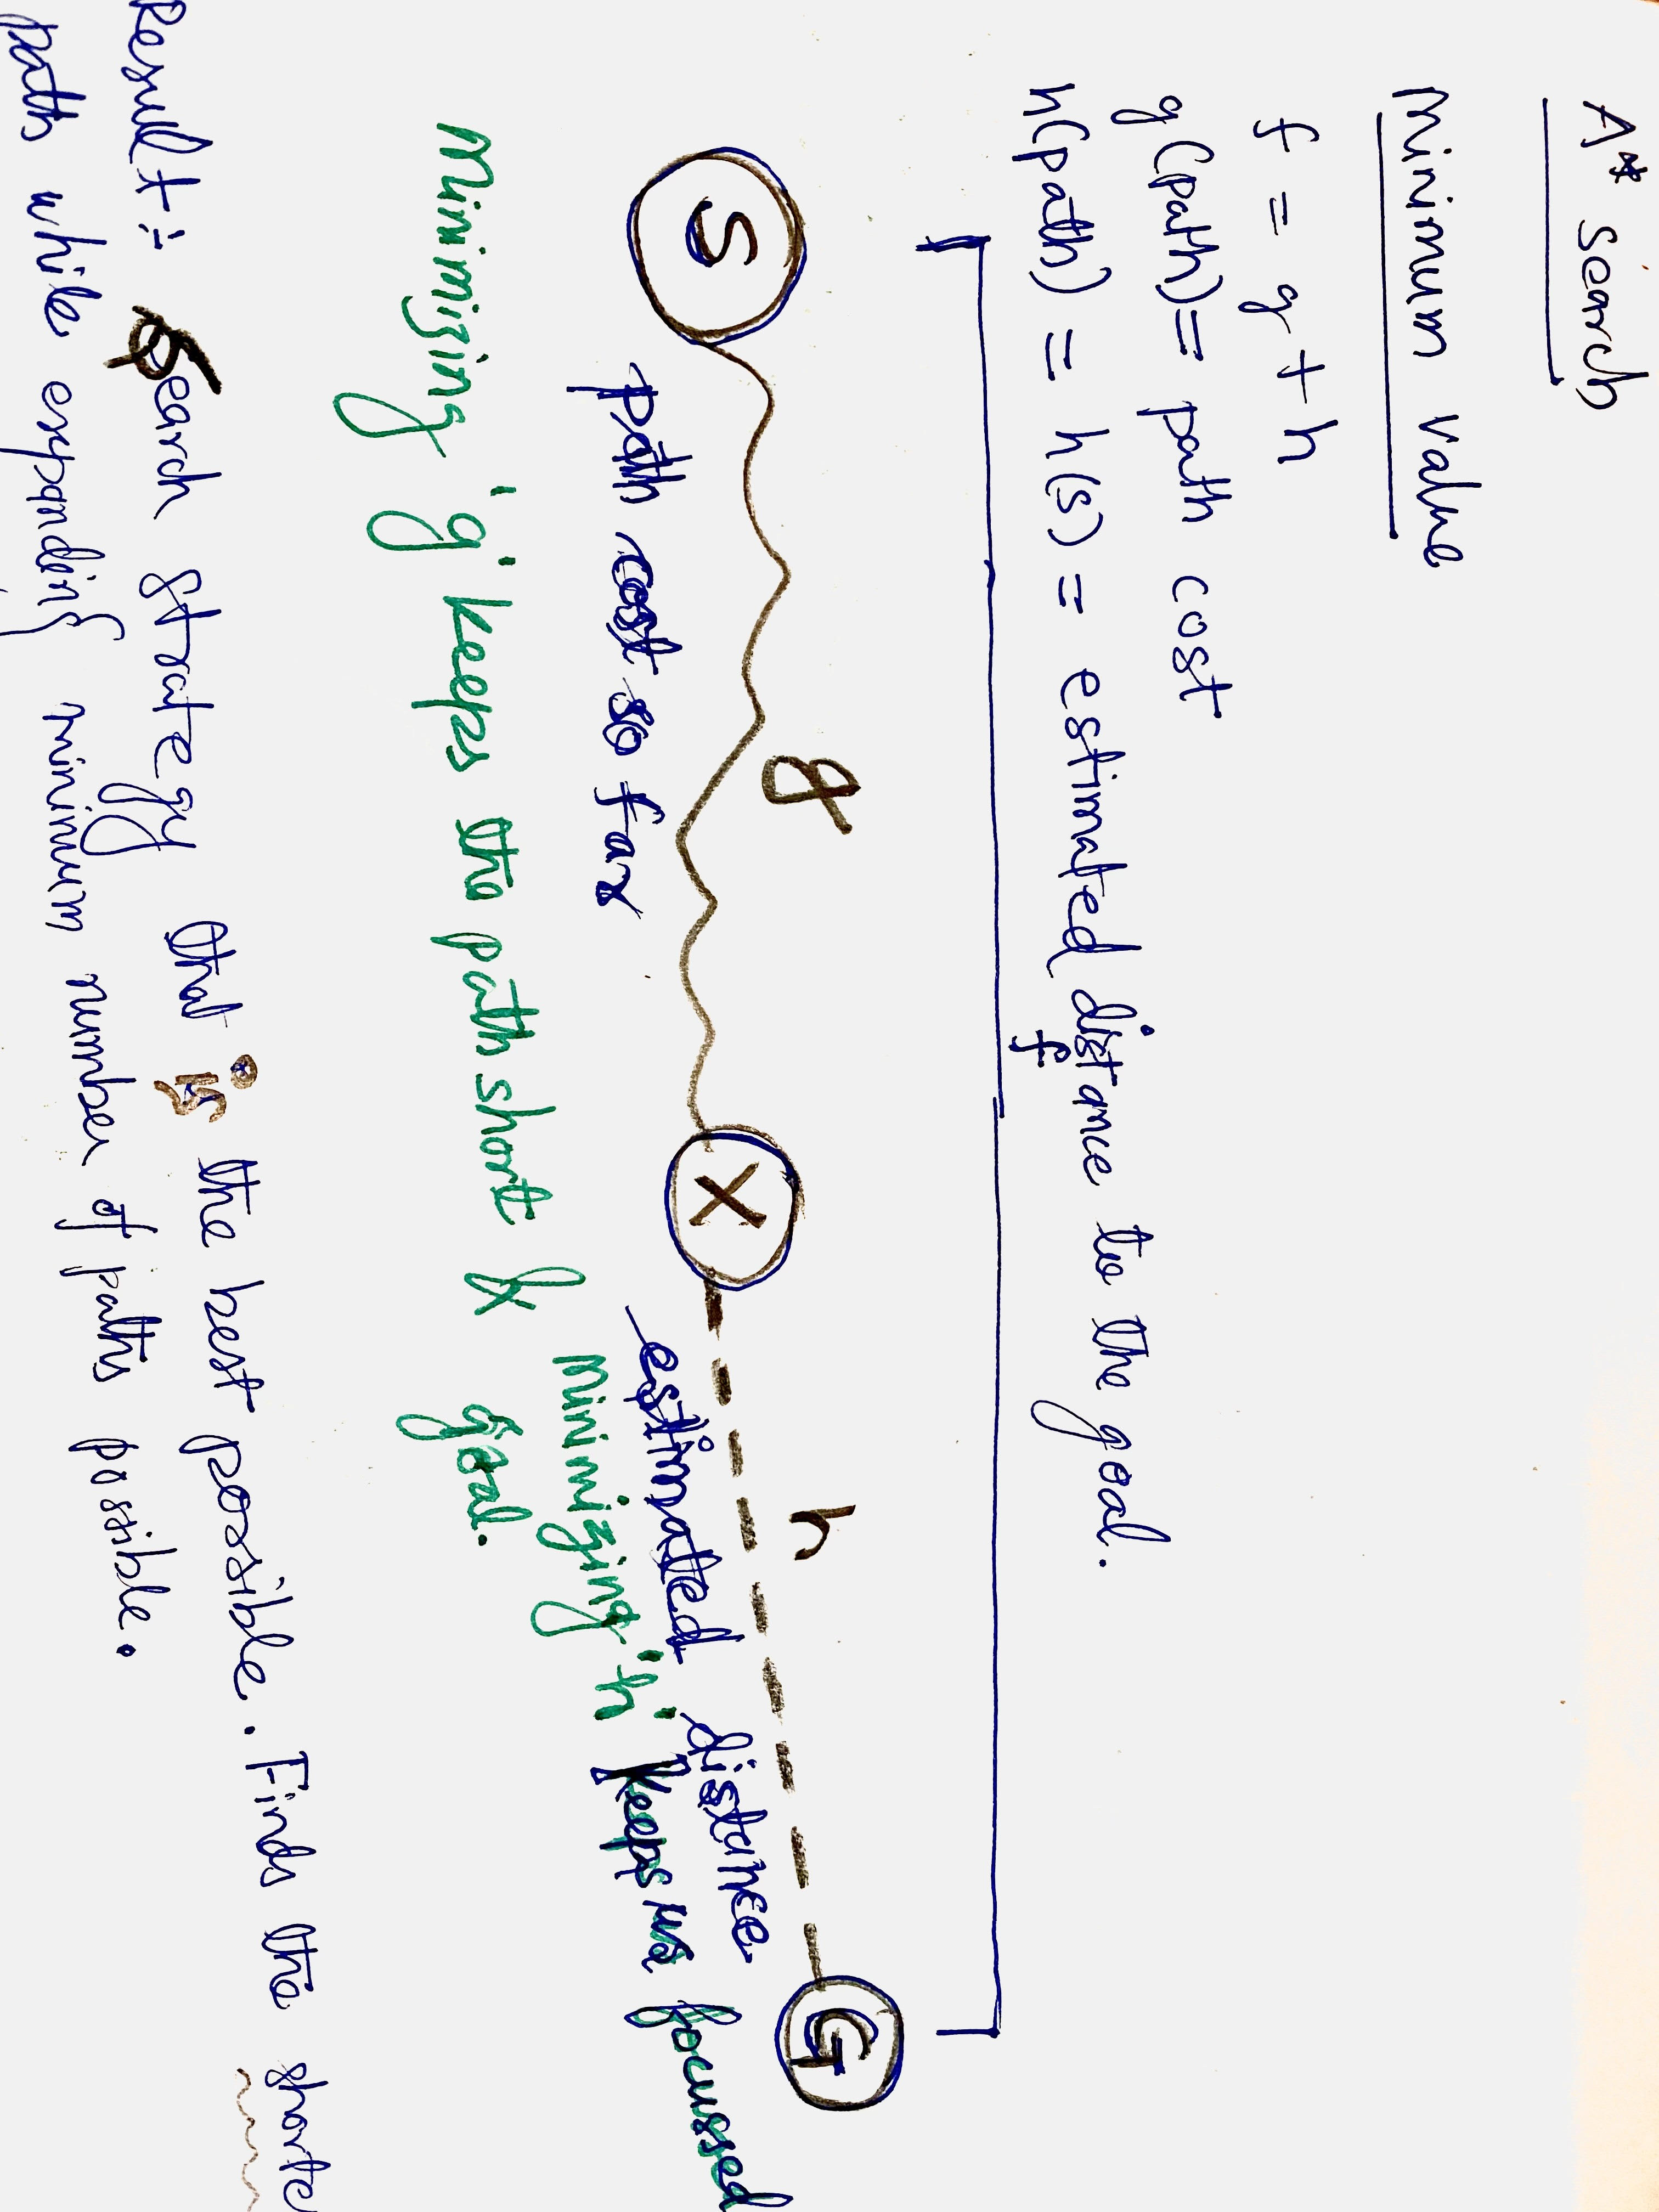 A* search
Minimum value
f = g + h
g(path) = path cost
h(path) = h(s) = estimated distance to the goal.
f
g
h
S
X
G
path cost so far
estimated distance
Minimizing 'g' keeps the path short &
Minimizing 'h' keeps us focussed
goal.
Result:- Search strategy that is the best possible. Finds the shorte
path while expanding minimum number of paths possible.